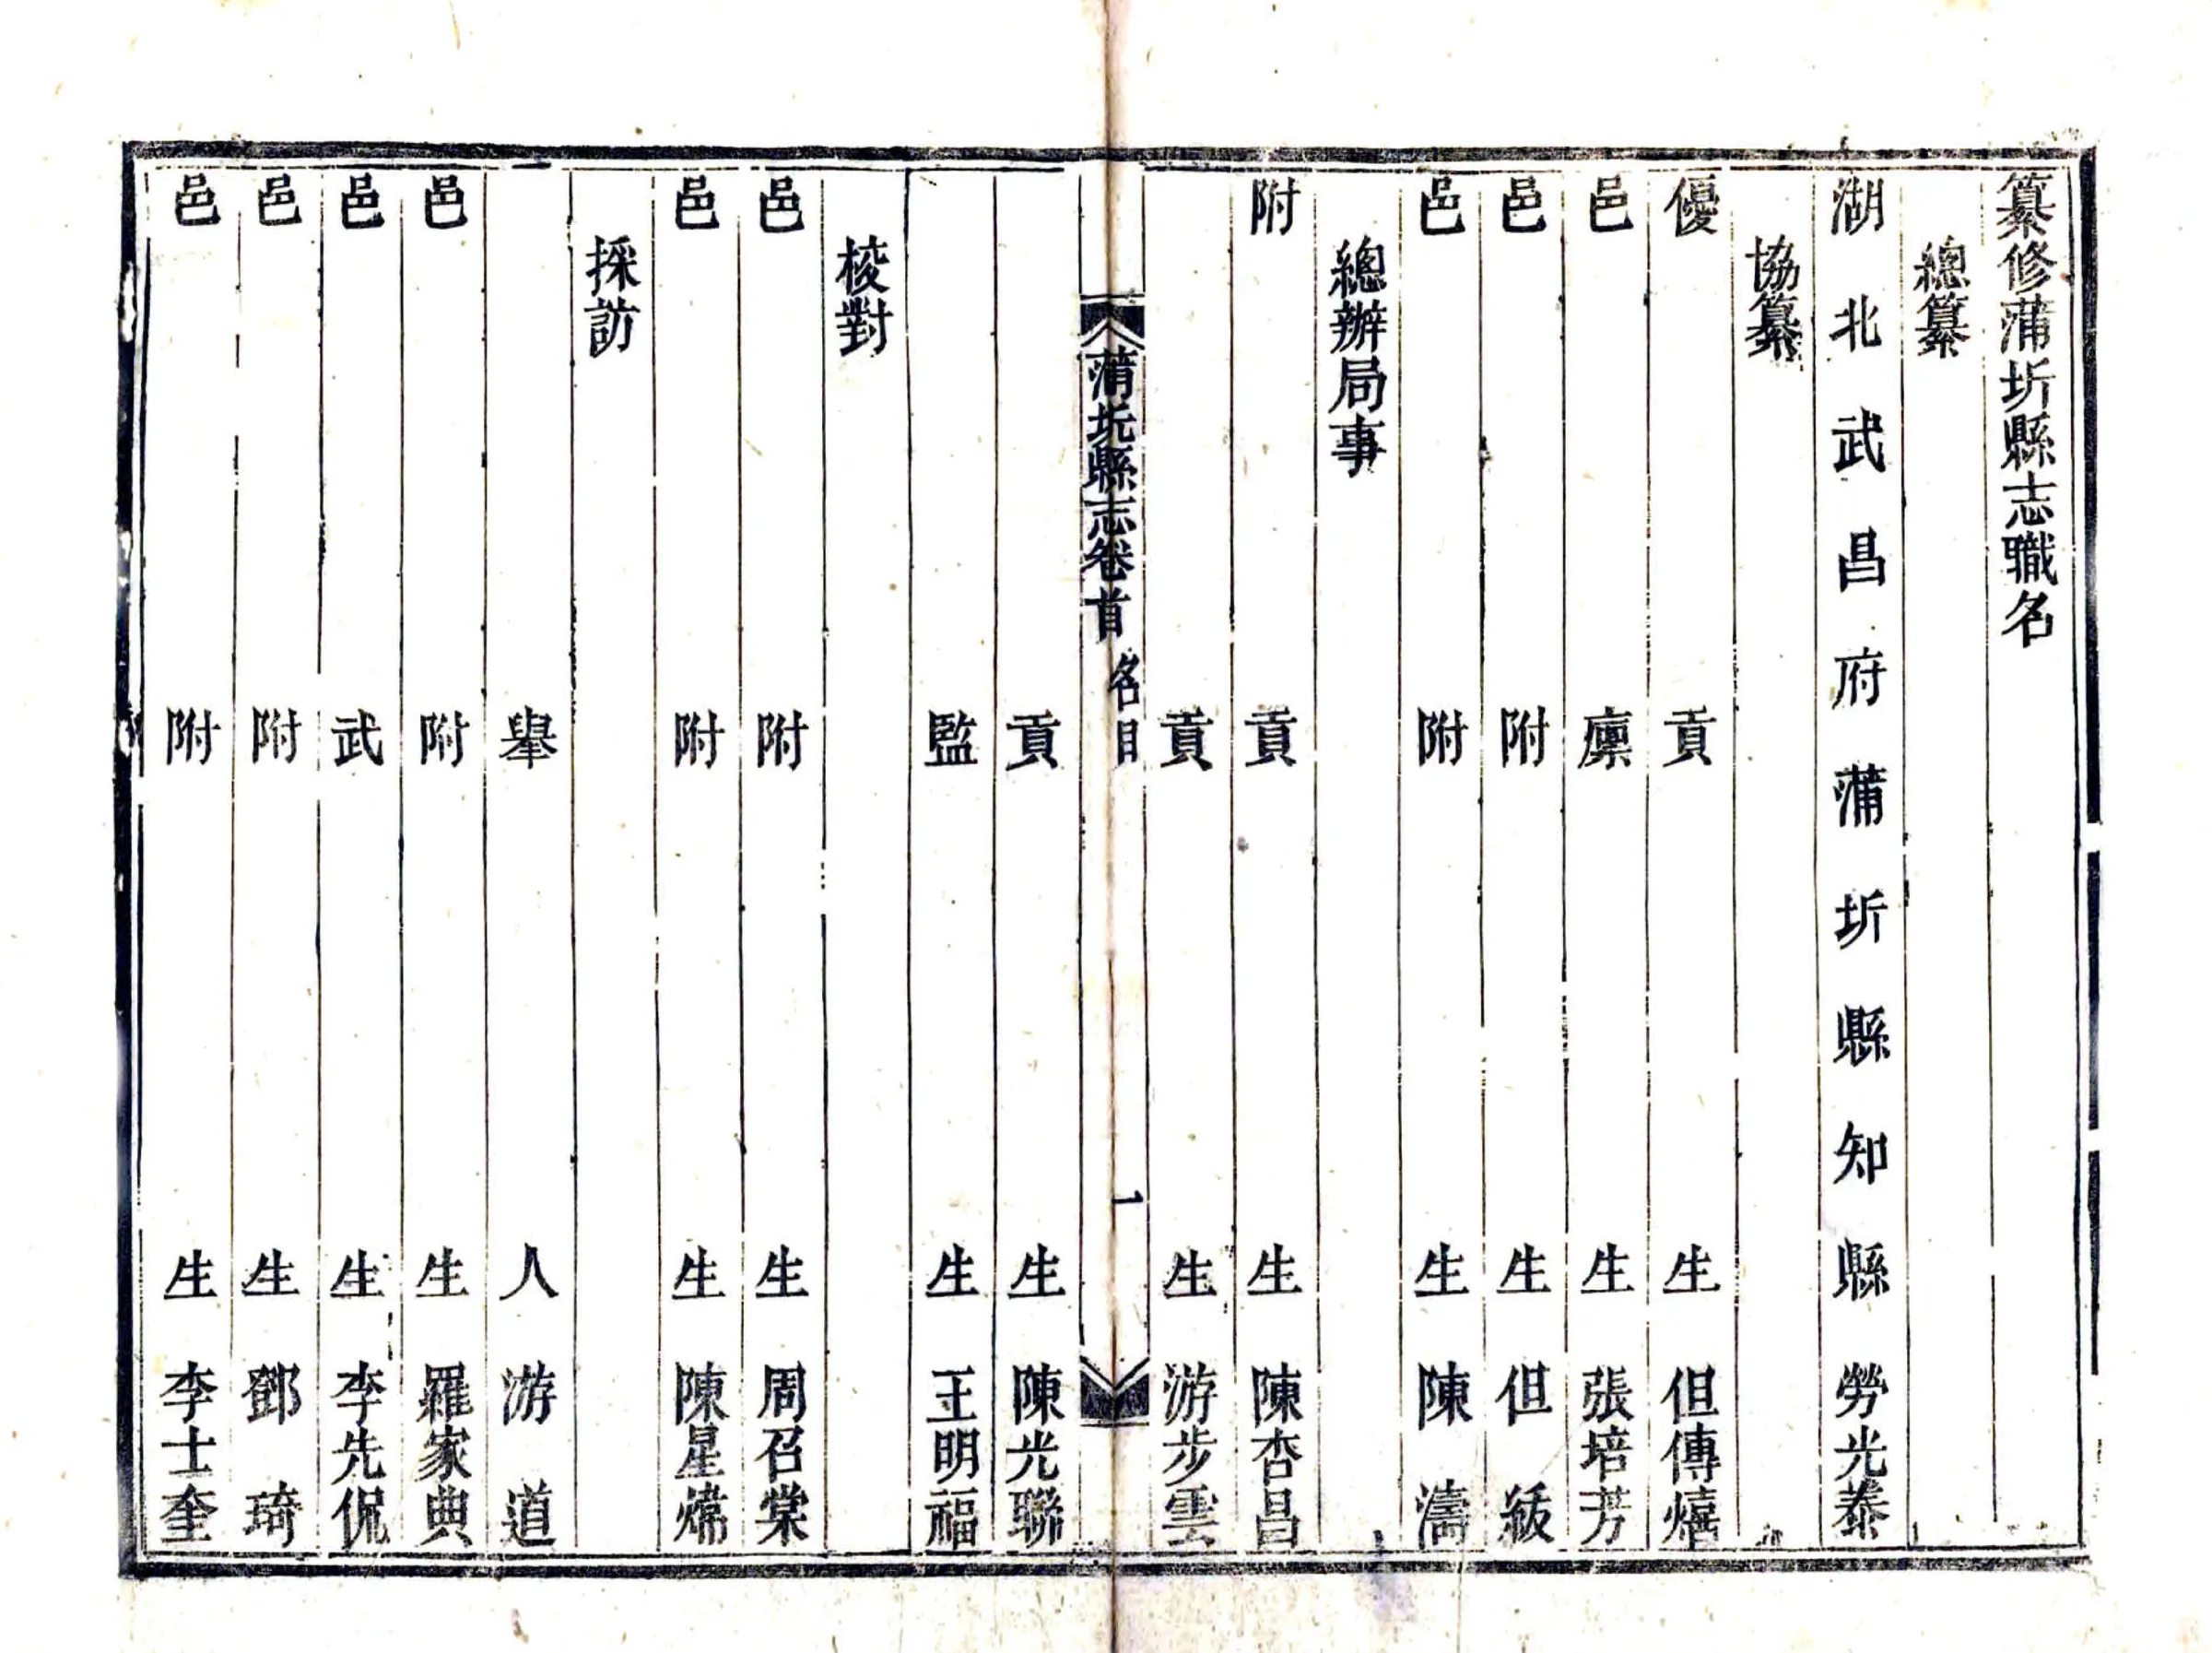 纂修蒲圻縣志職名
總纂
湖北武昌府蒲圻縣知縣勞光泰
協纂
優貢生但傳熺
邑廩生張培芳
邑附生但紱
邑附生陳濤
總辦局事
附貢生陳杏昌
貢生游步雲
蒲圻縣志卷首 名目 一
貢生陳光聯
監生王明福
校對
邑附生周召棠
邑附生陳星煒
採訪
舉人游道
邑附生羅家典
邑武生李先侃
邑附生鄧琦
邑附生李士奎